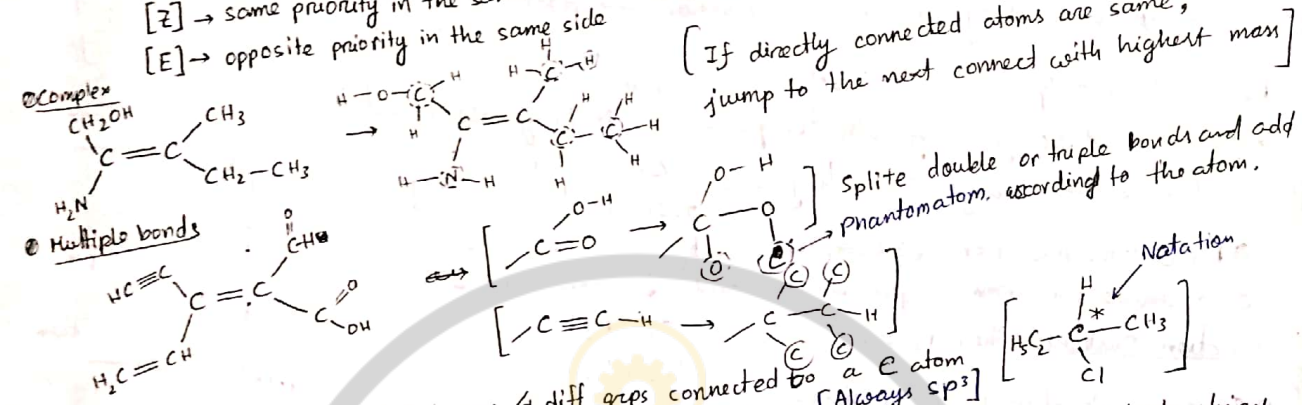 [Z] → same priority in the
[E] → opposite priority in the same side
[If directly connected atoms are same,
jump to the next connect with highest mass]
Complex
CH₂OH
CH₃
C=C
CH₂-CH₃
H₂N
→
H-O-C-H
H
C=C
H-N-H
Multiple bonds
HC≡C
C=C
H₂C=CH
O
C-H
C
O
OH
[C=O
O-H
→
O-H
C-O
O C]
Splite double or truple bonds and add
Phantomatom. according to the atom.
[-C≡C-H →
C C
C-C-H
C C]
Natation
[H
H₅C₂-C*-CH₃
Cl]
4 diff grps connected to a C atom
[Always sp³]